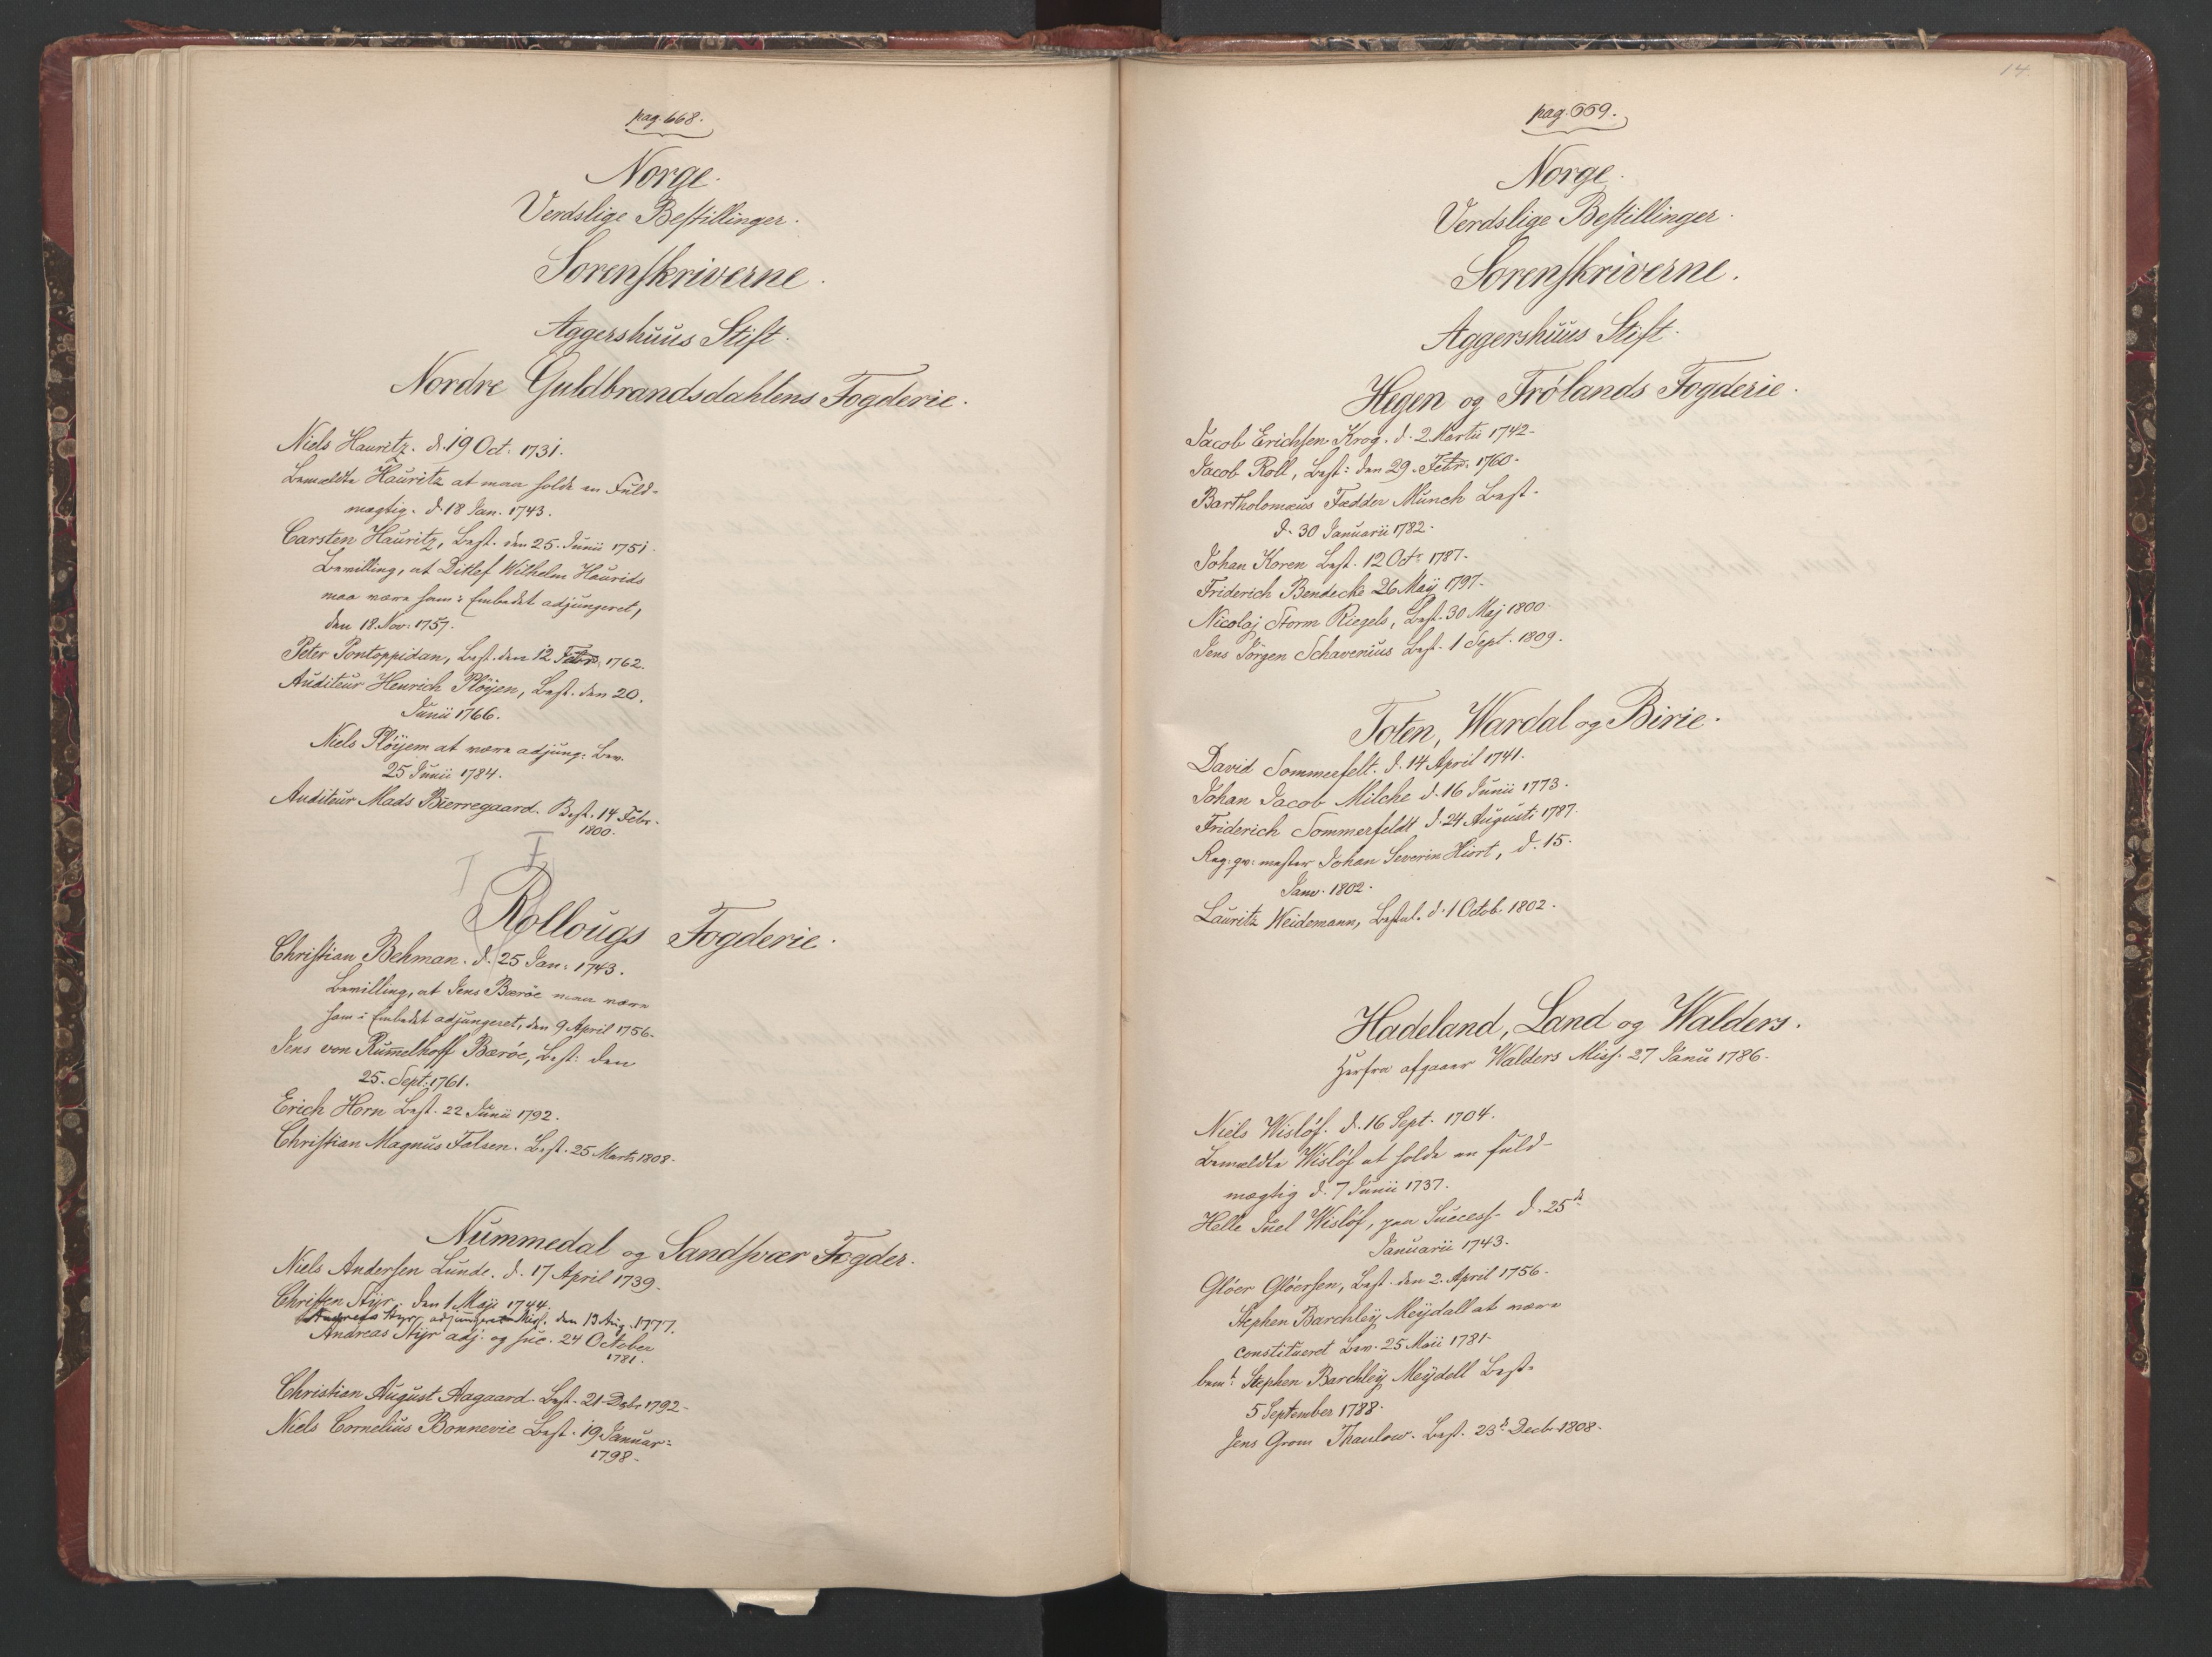 pag. 668.
Norge.
Verdslige Bestillinger.
Sorenskriverne.
Aggershuus Stift.
Nordre Guldbrandsdahlens Fogderie.
Niels Hauritz. d. 19 Oct. 1731.
Bemeldte Hauritz at maa holde en Fuld-
mægtig. d. 18 Jan. 1743.
Carsten Hauritz, Best. den 25. Junii 1751.
Bevilling, at Ditlef Wilhelm Haurids
maa være ham i Embedet adjungeret,
den 18. Nov. 1757.
Peter Pontoppidan, Best. den 12 Febr. 1762.
Auditeur Henrich Pløyen, Best. den 20.
Junii 1766.
Niels Pløyem at være adjung. Bev.
25 Junii 1784.
Auditeur Mads Bierregaard. Best. 14 Febr.
1800.
Rollougs Fogderie.
Christian Behman. d. 25 Jan: 1743.
Bevilling, at Jens Bærøe maa være
ham i Embedet adjungeret, den 9 April 1756.
Jens von Rummelhoff Bærøe, Best: den
25. Sept. 1761.
Erich Horn Best. 22 Junii 1792.
Christian Magnus Falsen. Best. 25 Marts 1808.
Nummedal og Sandsvær Fogder.
Niels Andersen Lunde. d. 17 April 1739.
Christen Styr. den 1 Maji 1744.
Andreas Styr adjungeret Miss. den 13 Aug. 1777.
Andreas Styr adj. og suc. 24 October
1781.
Christian August Aagaard. Best. 21 Debr 1792.
Niels Cornelius Bonnevie Best. 19 Januar:
1798.
14.
pag. 669.
Norge.
Verdslige Bestillinger.
Sorenskriverne.
Aggershuus Stift.
Hegen og Frølands Fogderie.
Jacob Erichsen Krog. d. 2 Martii 1742.
Jacob Roll, Best: den 29. Febr. 1760.
Bartholomæus Fædder Munch Best.
d. 30 Januarii 1782.
Johan Koren Best. 12 Oct. 1787.
Friderich Bendeche 26 May 1797.
Nicolaj Storm Riegels, Best. 30 Maj 1800.
Jens Jörgen Schavenius Best. 1 Sept. 1809.
Toten, Wardal og Birie.
David Sommerfelt. d. 14 April 1741.
Johan Jacob Milche d. 16 Junii 1773.
Friderich Sommerfeldt d. 24 Augusti 1787.
Reg: qv: mester Johan Severin Hiort, d. 15.
Janv. 1802.
Lauritz Weidemann, Bestal. d. 1 Octob. 1802.
Hadeland, Land og Walders.
Herfra afgaaer Walders Miss. 27 Janu 1786.
Niels Wisløf. d. 16 Sept. 1704.
Bemeldte Wisløf at holde en fuld-
mægtig d. 7 Junii 1737.
Helle Juel Wisløf, paa Success. d. 25de
Januarii 1743.
Gløer Gløersen, Best. den 2. April 1756.
Stephen Barchley Meydall at være
constitueret Bev. 25 Maii 1781.
bemt Stephen Barchley Meydell Best.
5 September 1788.
Jens Grom Thaulow. Best. 23d Decb. 1808.